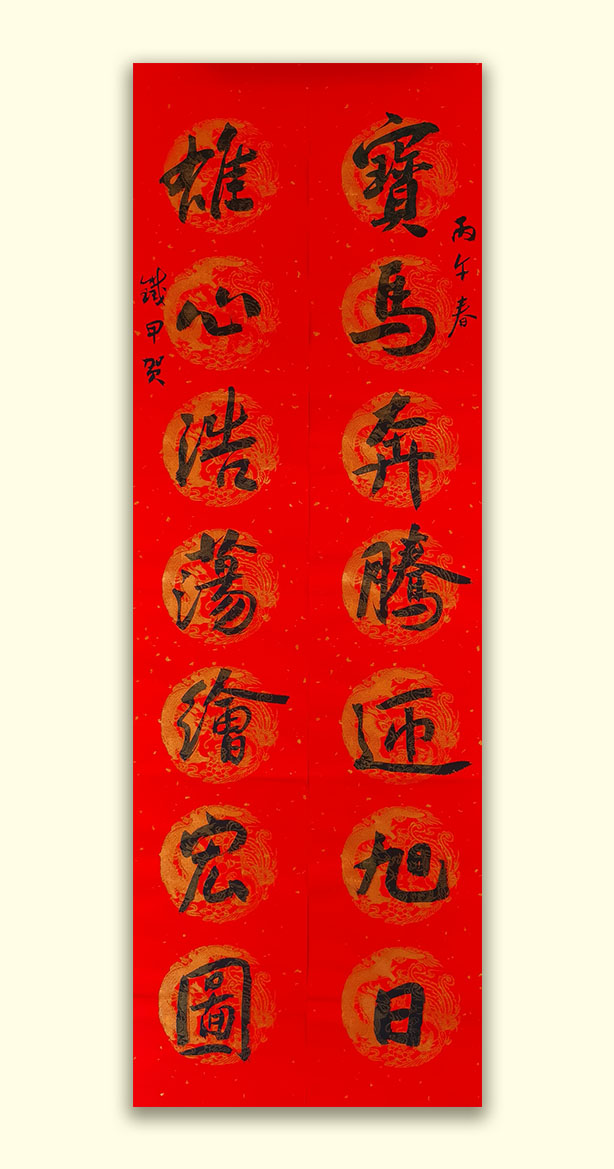 丙午春
寶馬奔騰迎旭日
雄心浩蕩繪宏圖
鐵甲贺